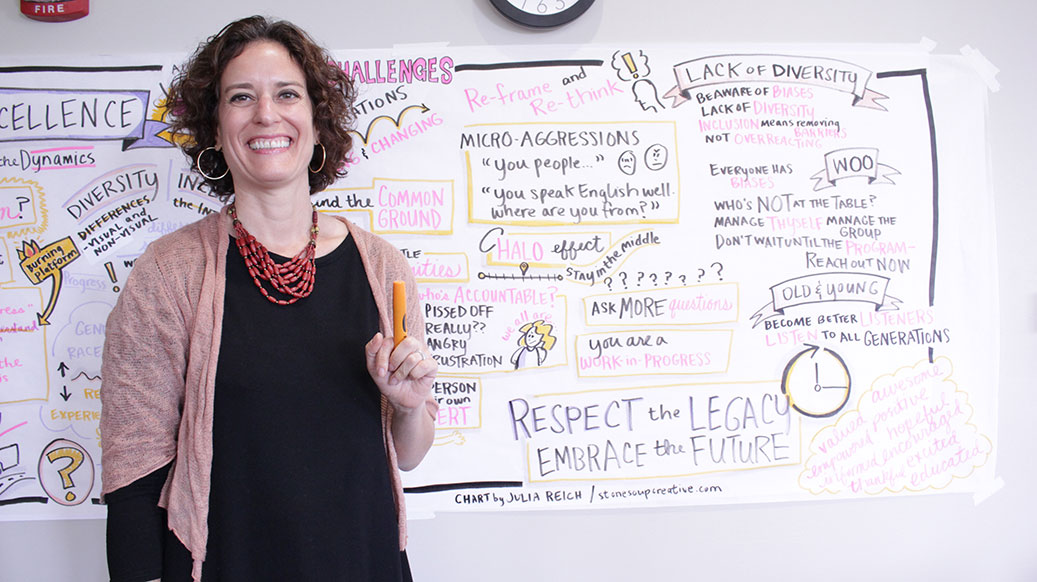 FIRE
CELLENCE
the DYNAMICS
DIVERSITY
DIFFERENCES
-VISUAL and
NON-VISUAL
Burning
platform
Progress
GEN
RACE
RE
EXPERIE
?
INC
the IN
HALLENGES
ATIONS
& CHANGING
nd the COMMON
GROUND
TLE
WHO'S ACCOUNTABLE?
PISSED OFF
REALLY??
ANGRY
RUSTRATION
we all are
PERSON
eir own
ERT
Re-frame and
Re-think
MICRO-AGGRESSIONS
"you people..."
"you speak English well.
where are you from?"
HALO effect
STAY in the middle
? ? ? ? ? ? ?
ASK MORE questions
you are a
WORK-in-PROGRESS
RESPECT the LEGACY
EMBRACE the FUTURE
LACK of DIVERSITY
BEAWARE of BIASES
LACK of DIVERSITY
INCLUSION means removing
BARRIERS
NOT OVERREACTING
WOO
EVERYONE HAS
BIASES
WHO'S NOT AT the TABLE?
MANAGE THYSELF MANAGE the
GROUP
DON'T WAIT UNTIL the PROGRAM—
REACH OUT NOW
OLD & YOUNG
BECOME BETTER LISTENERS
LISTEN to ALL GENERATIONS
valued awesome
empowered positive
hopeful
informed encouraged
thankful excited
educated
CHART by JULIA REICH / stonesoupcreative.com